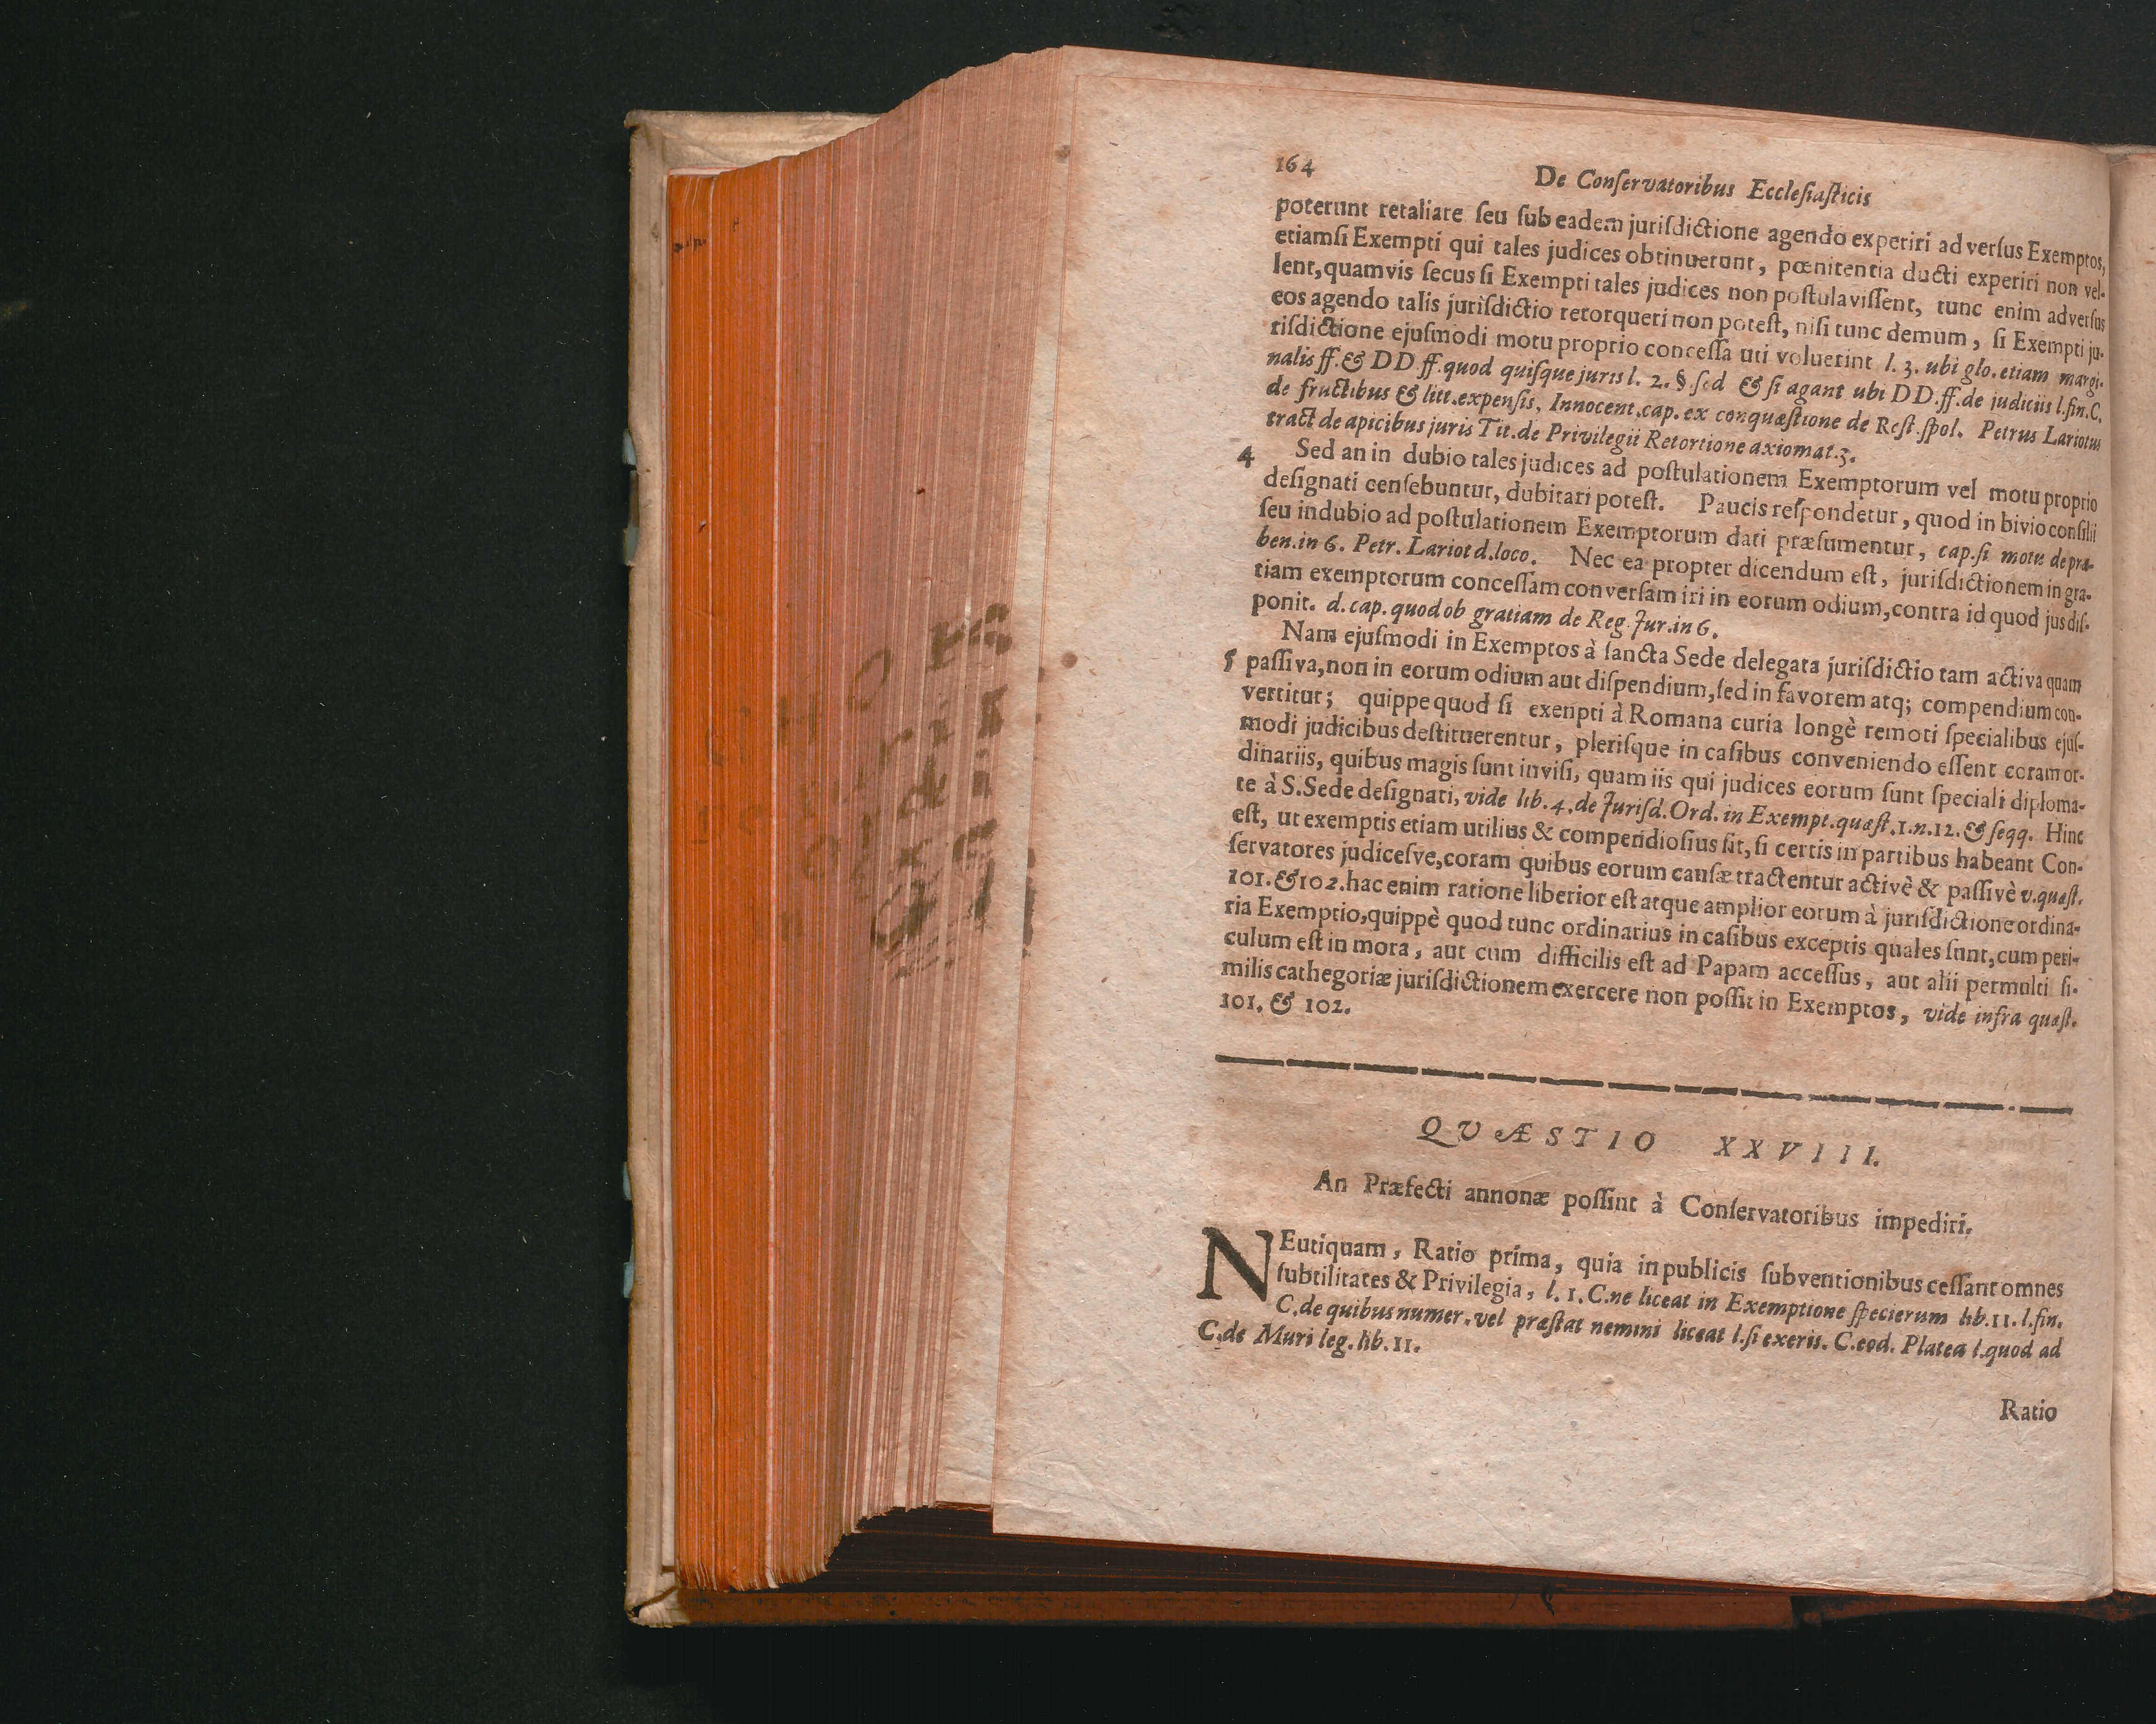 164
De Conſervatoribus Eccleſiaſticis
poterunt retaliare ſeu ſub eadem juriſdictione agendo experiri adverſus Exemptos,
etiamſi Exempti qui tales judices obtinuerunt, pœnitentia ducti experiri non vel-
lent, quamvis ſecus ſi Exempti tales judices non poſtulaviſſent, tunc enim adverſus
eos agendo talis juriſdictio retorqueri non poteſt, niſi tunc demum, ſi Exempti ju-
riſdictione ejuſmodi motu proprio conceſſa uti voluerint l. 3. ubi glo. etiam margi-
nalis ff. & DD ff. quod quiſque juris l. 2. §. ſed & ſi agant ubi DD. ff. de judiciis l. fin. C.
de fructibus & litt. expenſis, Innocent. cap. ex conquæſtione de Reſt. ſpol. Petrus Lariotus
tract de apicibus juris Tit. de Privilegii Retortione axiomat. 3.
4 Sed an in dubio tales judices ad poſtulationem Exemptorum vel motu proprio
deſignati cenſebuntur, dubitari poteſt. Paucis reſpondetur, quod in bivio conſilii
ſeu indubio ad poſtulationem Exemptorum dati præſumentur, cap. ſi motu de præ-
ben. in 6. Petr. Lariot d. loco. Nec ea propter dicendum eſt, juriſdictionem in gra-
tiam exemptorum conceſſam converſam iri in eorum odium, contra id quod jus diſ-
ponit. d. cap. quod ob gratiam de Reg. Jur. in 6.
Nam ejuſmodi in Exemptos à ſancta Sede delegata juriſdictio tam activa quam
5 paſſiva, non in eorum odium aut diſpendium, ſed in favorem atq; compendium con-
vertitur; quippe quod ſi exenpti à Romana curia longè remoti ſpecialibus ejuſ-
modi judicibus deſtituerentur, pleriſque in caſibus conveniendo eſſent coram or-
dinariis, quibus magis ſunt inviſi, quam iis qui judices eorum ſunt ſpeciali diploma-
te à S. Sede deſignati, vide lib. 4. de Juriſd. Ord. in Exempt. quæſt. 1. n. 12. & ſeqq. Hinc
eſt, ut exemptis etiam utilius & compendioſius ſit, ſi certis in partibus habeant Con-
ſervatores judiceſve, coram quibus eorum cauſæ tractentur activè & paſſivè v. quæſt.
101. & 102. hac enim ratione liberior eſt atque amplior eorum à juriſdictione ordina-
ria Exemptio, quippè quod tunc ordinarius in caſibus exceptis quales ſunt, cum peri-
culum eſt in mora, aut cum difficilis eſt ad Papam acceſſus, aut alii permulti ſi-
milis cathegoriæ juriſdictionem exercere non poſſit in Exemptos, vide infra quæſt.
101. & 102.
QUÆSTIO XXVIII.
An Præfecti annonæ poſſint à Conſervatoribus impediri.
NEutiquam, Ratio prima, quia in publicis ſubventionibus ceſſant omnes
ſubtilitates & Privilegia, l. 1. C. ne liceat in Exemptione ſpecierum lib. 11. l. fin.
C. de quibus numer. vel præſtat nemini liceat l. ſi exeris. C. eod. Platea l. quod ad
C. de Muri leg. lib. 11.
Ratio